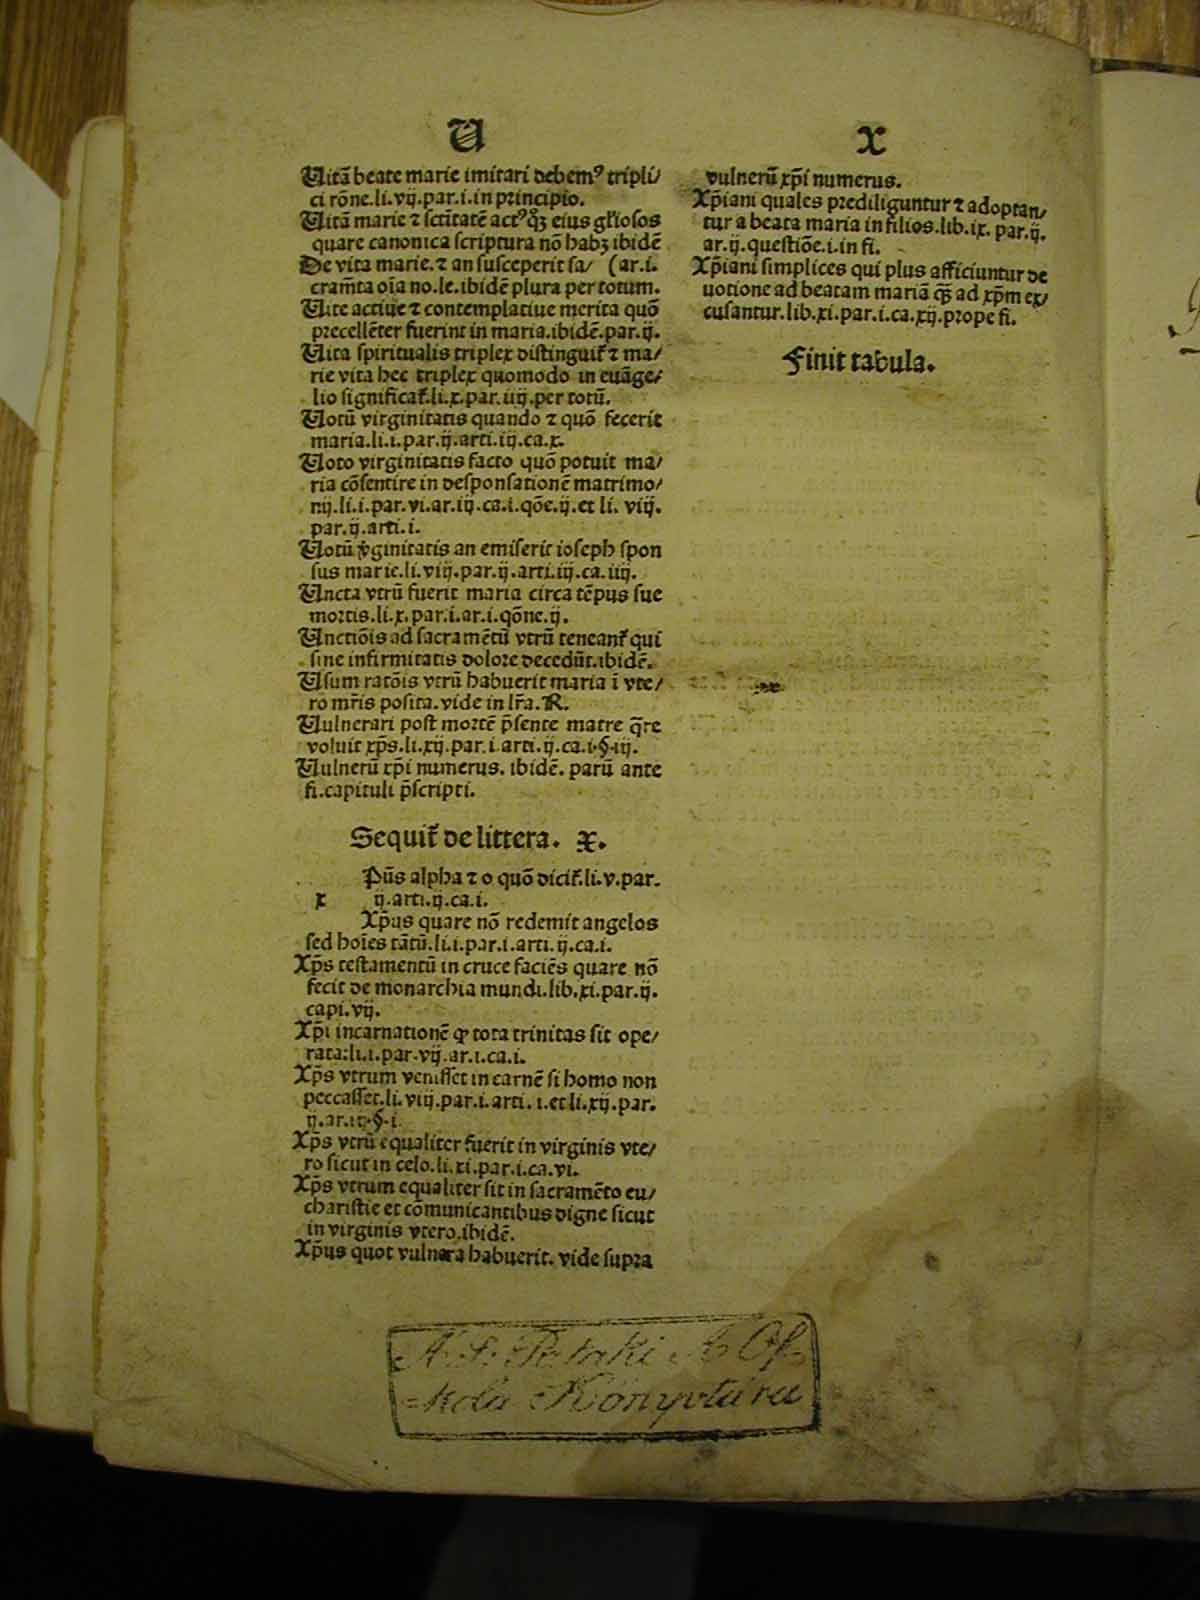 U
Uitā beate marie imitari debemꝰ tripli/
ci rōne.li.vij.par.i.in principio.
Uitā marie ⁊ sctītatē actꝰqꝫ eius gl'iosos
quare canonica scriptura nō habꝫ ibidē
De vita marie.⁊ an susceperit sa/ (ar.i.
cram̄ta oīa no.le.ibidē plura per totum.
Uite actiue ⁊ contemplatiue merita quō
precellēter fuerint in maria.ibidē.par.ij.
Uita spiritualis triplex distinguit̄ ⁊ ma/
rie vita hec triplex quomodo in euāge/
lio significat̄.li.x.par.iiij.per totū.
Uotū virginitatis quando ⁊ quō fecerit
maria.li.i.par.ij.arti.iij.ca.x.
Uoto virginitatis facto quō potuit ma/
ria cōsentire in desponsationē matrimo/
nij.li.i.par.vi.ar.iij.ca.i.qōe.ij.et li. viij.
par.ij.arti.i.
Uotū v̄ginitatis an emiserit ioseph spon
sus marie.li.viij.par.ij.arti.iij.ca.iiij.
Uncta vtrū fuerit maria circa tēpus sue
mortis.li.x.par.i.ar.i.qōne.ij.
Unctiōis ad sacramētū vtrū teneant̄ qui
sine infirmitatis dolore decedūt.ibidē.
Usum ratōis vtrū habuerit maria ī vte/
ro mr̄is posita.vide in lr̄a.R.
Uulnerari post mortē p̄sente matre q̄re
voluit xp̄s.li.xij.par.i.arti.ij.ca.i.§.iij.
Uulnerū xp̄i numerus. ibidē. parū ante
fi.capituli p̄scripti.
Sequit̄ de littera. X.
x
Pūs alpha ⁊ o quō dicit̄.li.v.par.
ij.arti.ij.ca.i.
Xp̄us quare nō redemit angelos
sed hoīes tātū.li.i.par.i.arti.ij.ca.i.
Xp̄s testamentū in cruce faciēs quare nō
fecit de monarchia mundi.lib.xi.par.ij.
capi.vij.
Xp̄i incarnationē ꝙ tota trinitas sit ope/
rata:li.i.par.vij.ar.i.ca.i.
Xp̄s vtrum venisset in carnē si homo non
peccasset.li.viij.par.i.arti. i.et li.xij.par.
ij.ar.ii.§.i.
Xp̄s vtrū equaliter fuerit in virginis vte/
ro sicut in celo.li.xi.par.i.ca.vi.
Xp̄s vtrum equaliter sit in sacramēto eu/
charistie et cōmunicantibus digne sicut
in virginis vtero.ibidē.
Xp̄us quot vulnera habuerit. vide supra
X
vulnerū xp̄i numerus.
Xp̄iani quales prediliguntur ⁊ adoptan/
tur a beata maria in filios.lib.ix. par.ij.
ar.ij.questiōe.i.in fi.
Xp̄iani simplices qui plus afficiuntur de
uotione ad beatam mariā q̄ꝫ ad xp̄m ex/
cusantur.lib.xi.par.i.ca.xij.prope fi.
Finit tabula.
A. S. Pataki A Os-
=kola Könyvtára